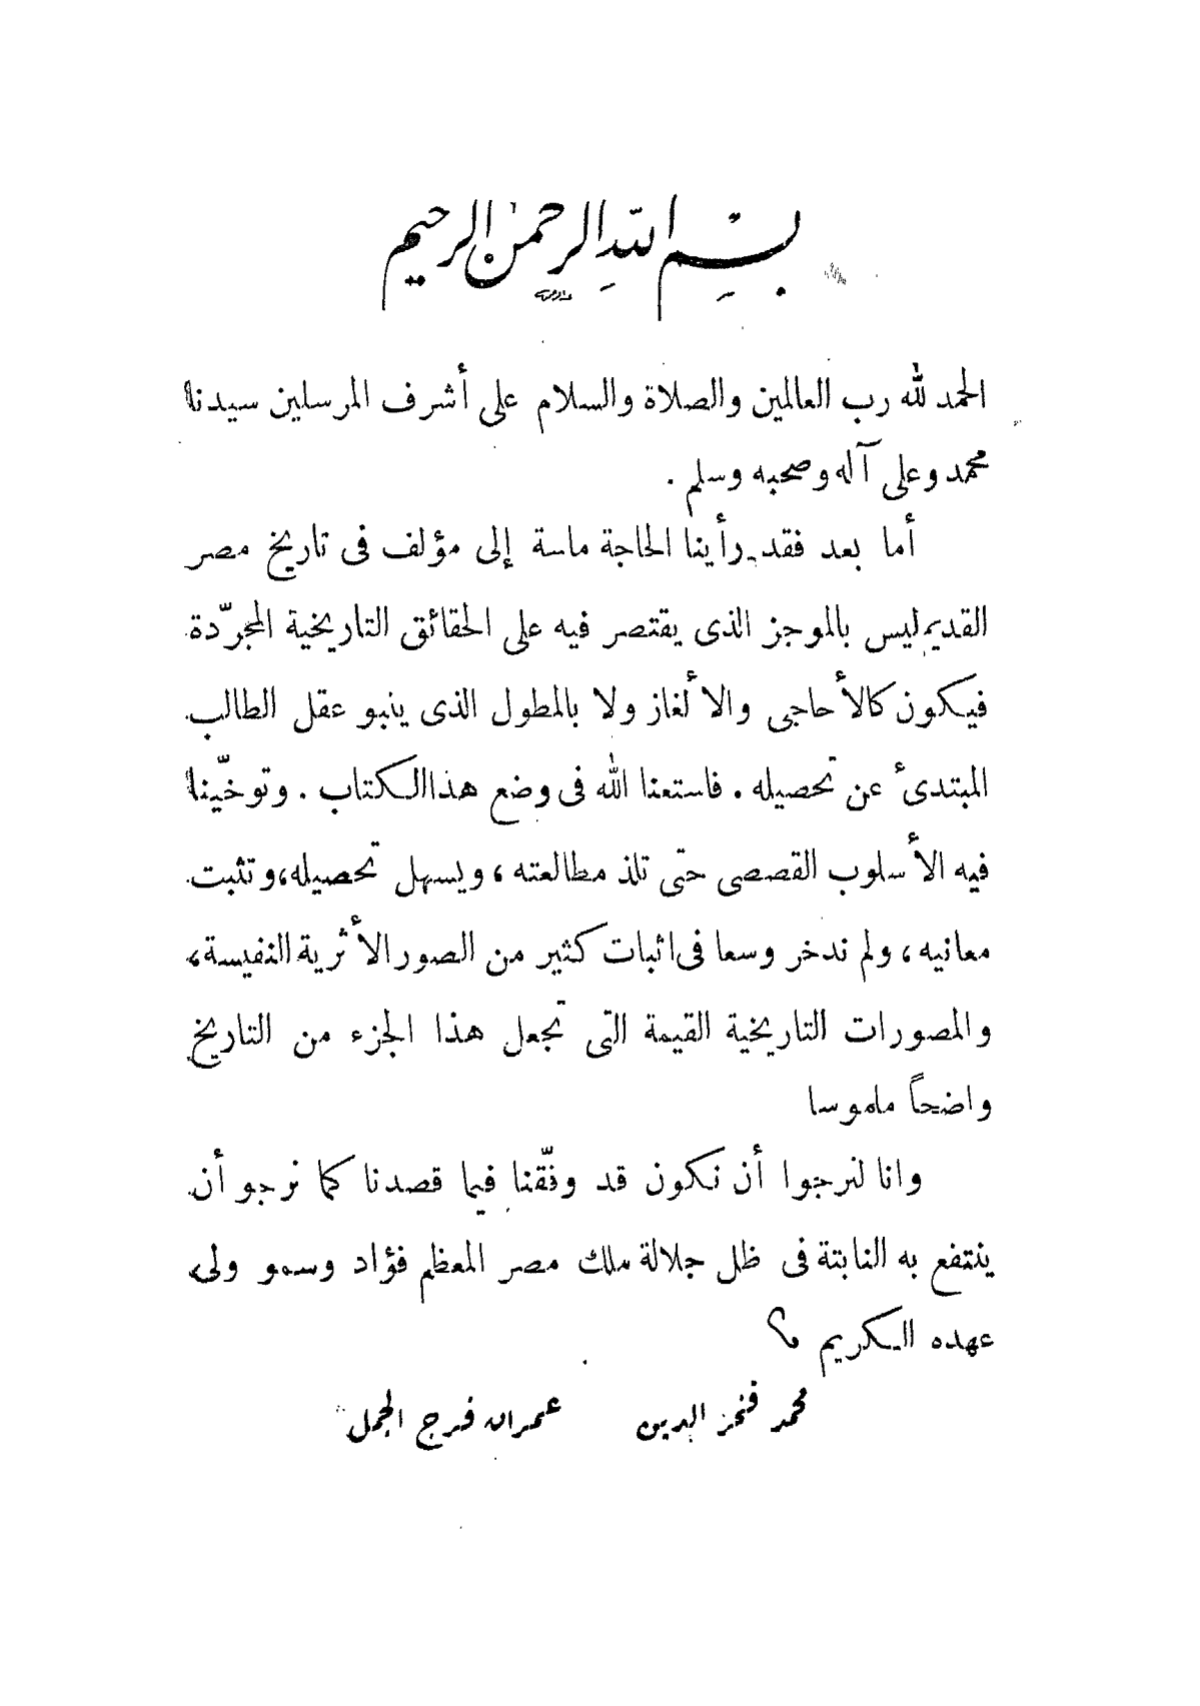 بسم الله الرحمن الرحيم
الحمد لله رب العالمين والصلاة والسلام على أشرف المرسلين سيدنا
محمد وعلى آله وصحبه وسلم .
أما بعد فقد رأينا الحاجة ماسة إلى مؤلف فى تاريخ مصر
القديم ليس بالموجز الذى يقتصر فيه على الحقائق التاريخية المجرّدة
فيكون كالأحاجى والألغاز ولا بالمطول الذى ينبو عقل الطالب
المبتدئ عن تحصيله . فاستعنا الله فى وضع هذا الكتاب . وتوخّينا
فيه الأسلوب القصصى حتى تلذ مطالعته ، ويسهل تحصيله، وتثبت
معانيه ، ولم ندخر وسعا فى اثبات كثير من الصور الأثرية النفيسة،
والمصورات التاريخية القيمة التى تجعل هذا الجزء من التاريخ
واضحاً ملموسا
وانا لنرجوا أن نكون قد وفّقنا فيما قصدنا كما نرجو أن
ينتفع به النابتة فى ظل جلالة ملك مصر المعظم فؤاد وسمو ولى
عهده الكريم ؟
محمد فخر الدين عمران فرج الجمل